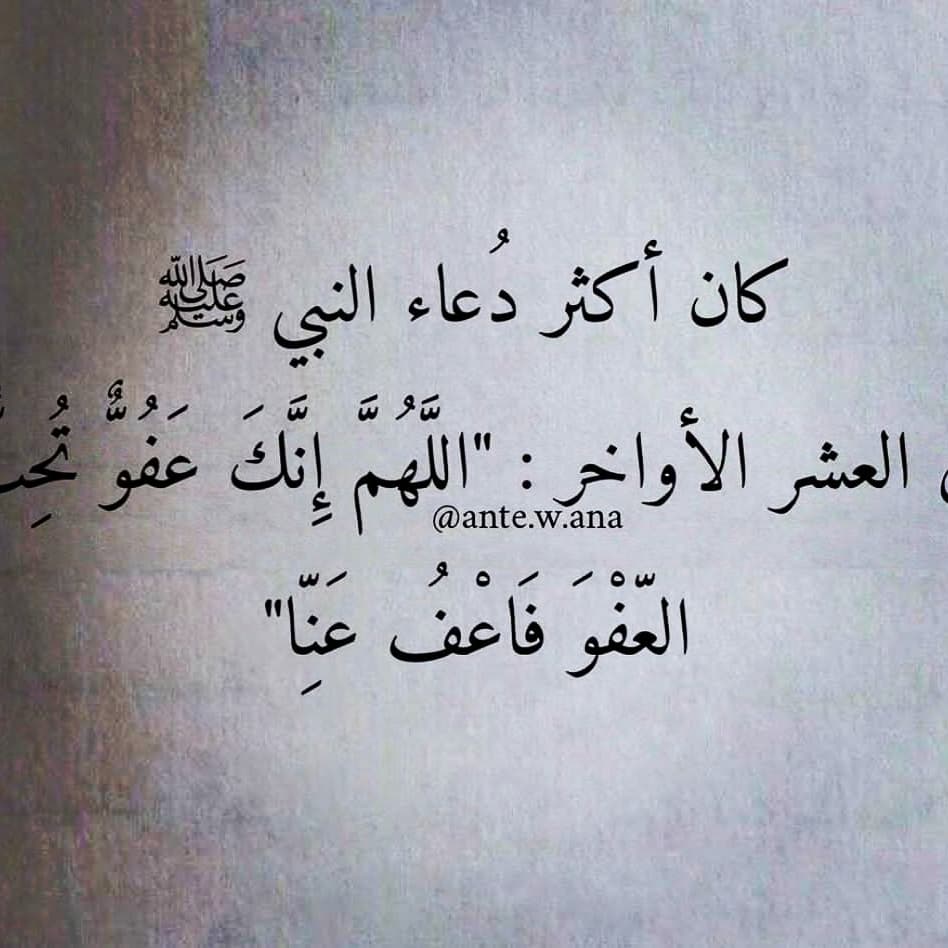 كان أكثر دُعاء النبي ﷺ
العشر الأواخر : "اللَّهُمَّ إِنَّكَ عَفُوٌّ
@ante.w.ana
العّفْوَ فَاعْفُ عَنِّا"